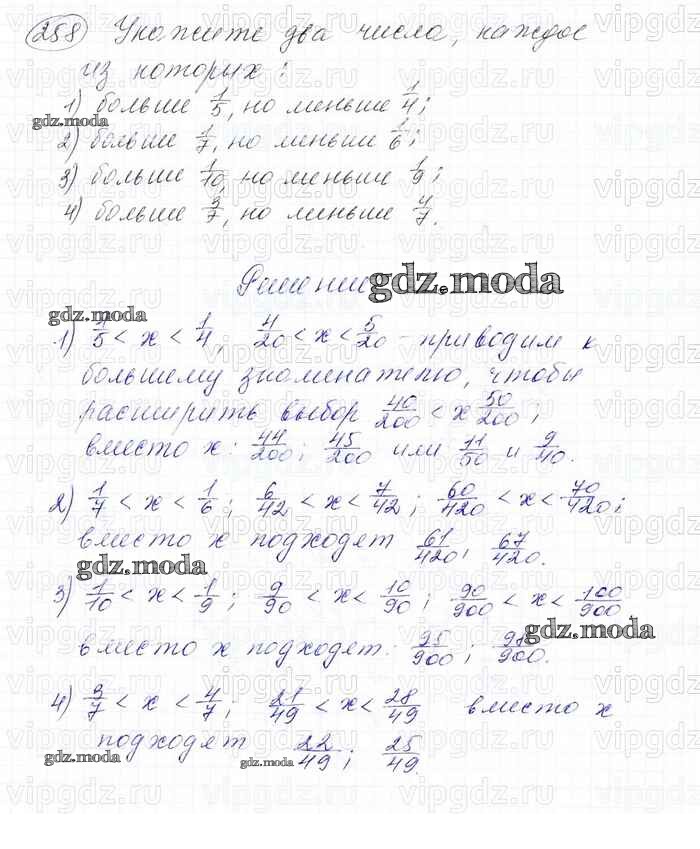 258 Укажите два числа, каждое
из которых:
1) больше 1/5, но меньше 1/4;
gdz.moda
2) больше 1/7, но меньше 1/6;
3) больше 1/10, но меньше 1/9;
4) больше 3/7, но меньше 4/7.
Решение
gdz.moda
gdz.moda
1) 1/5 < x < 1/4, 4/20 < x < 5/20 - приводим к
большему знаменателю, чтобы
расширить выбор 40/200 < x 50/200;
вместо x: 44/200; 45/200 или 11/50 и 9/40.
2) 1/7 < x < 1/6; 6/42 < x < 7/42; 60/420 < x < 70/420;
вместо x подходят 61/420; 67/420.
gdz.moda
3) 1/10 < x < 1/9; 9/90 < x < 10/90; 90/900 < x < 100/900.
gdz.moda
вместо x подходят: 95/900; 98/900.
4) 3/7 < x < 4/7; 21/49 < x < 28/49 вместо x
подходят 22/49; 25/49.
gdz.moda
gdz.moda
vipgdz.ru